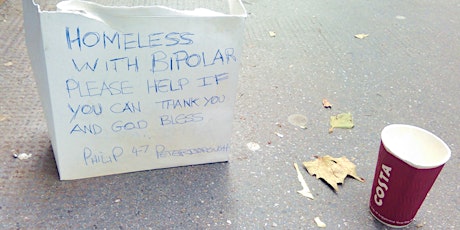 HOMELESS
WITH BIPOLAR
PLEASE HELP IF
YOU CAN THANK YOU
AND GOD BLESS
PHILIP 47
COSTA